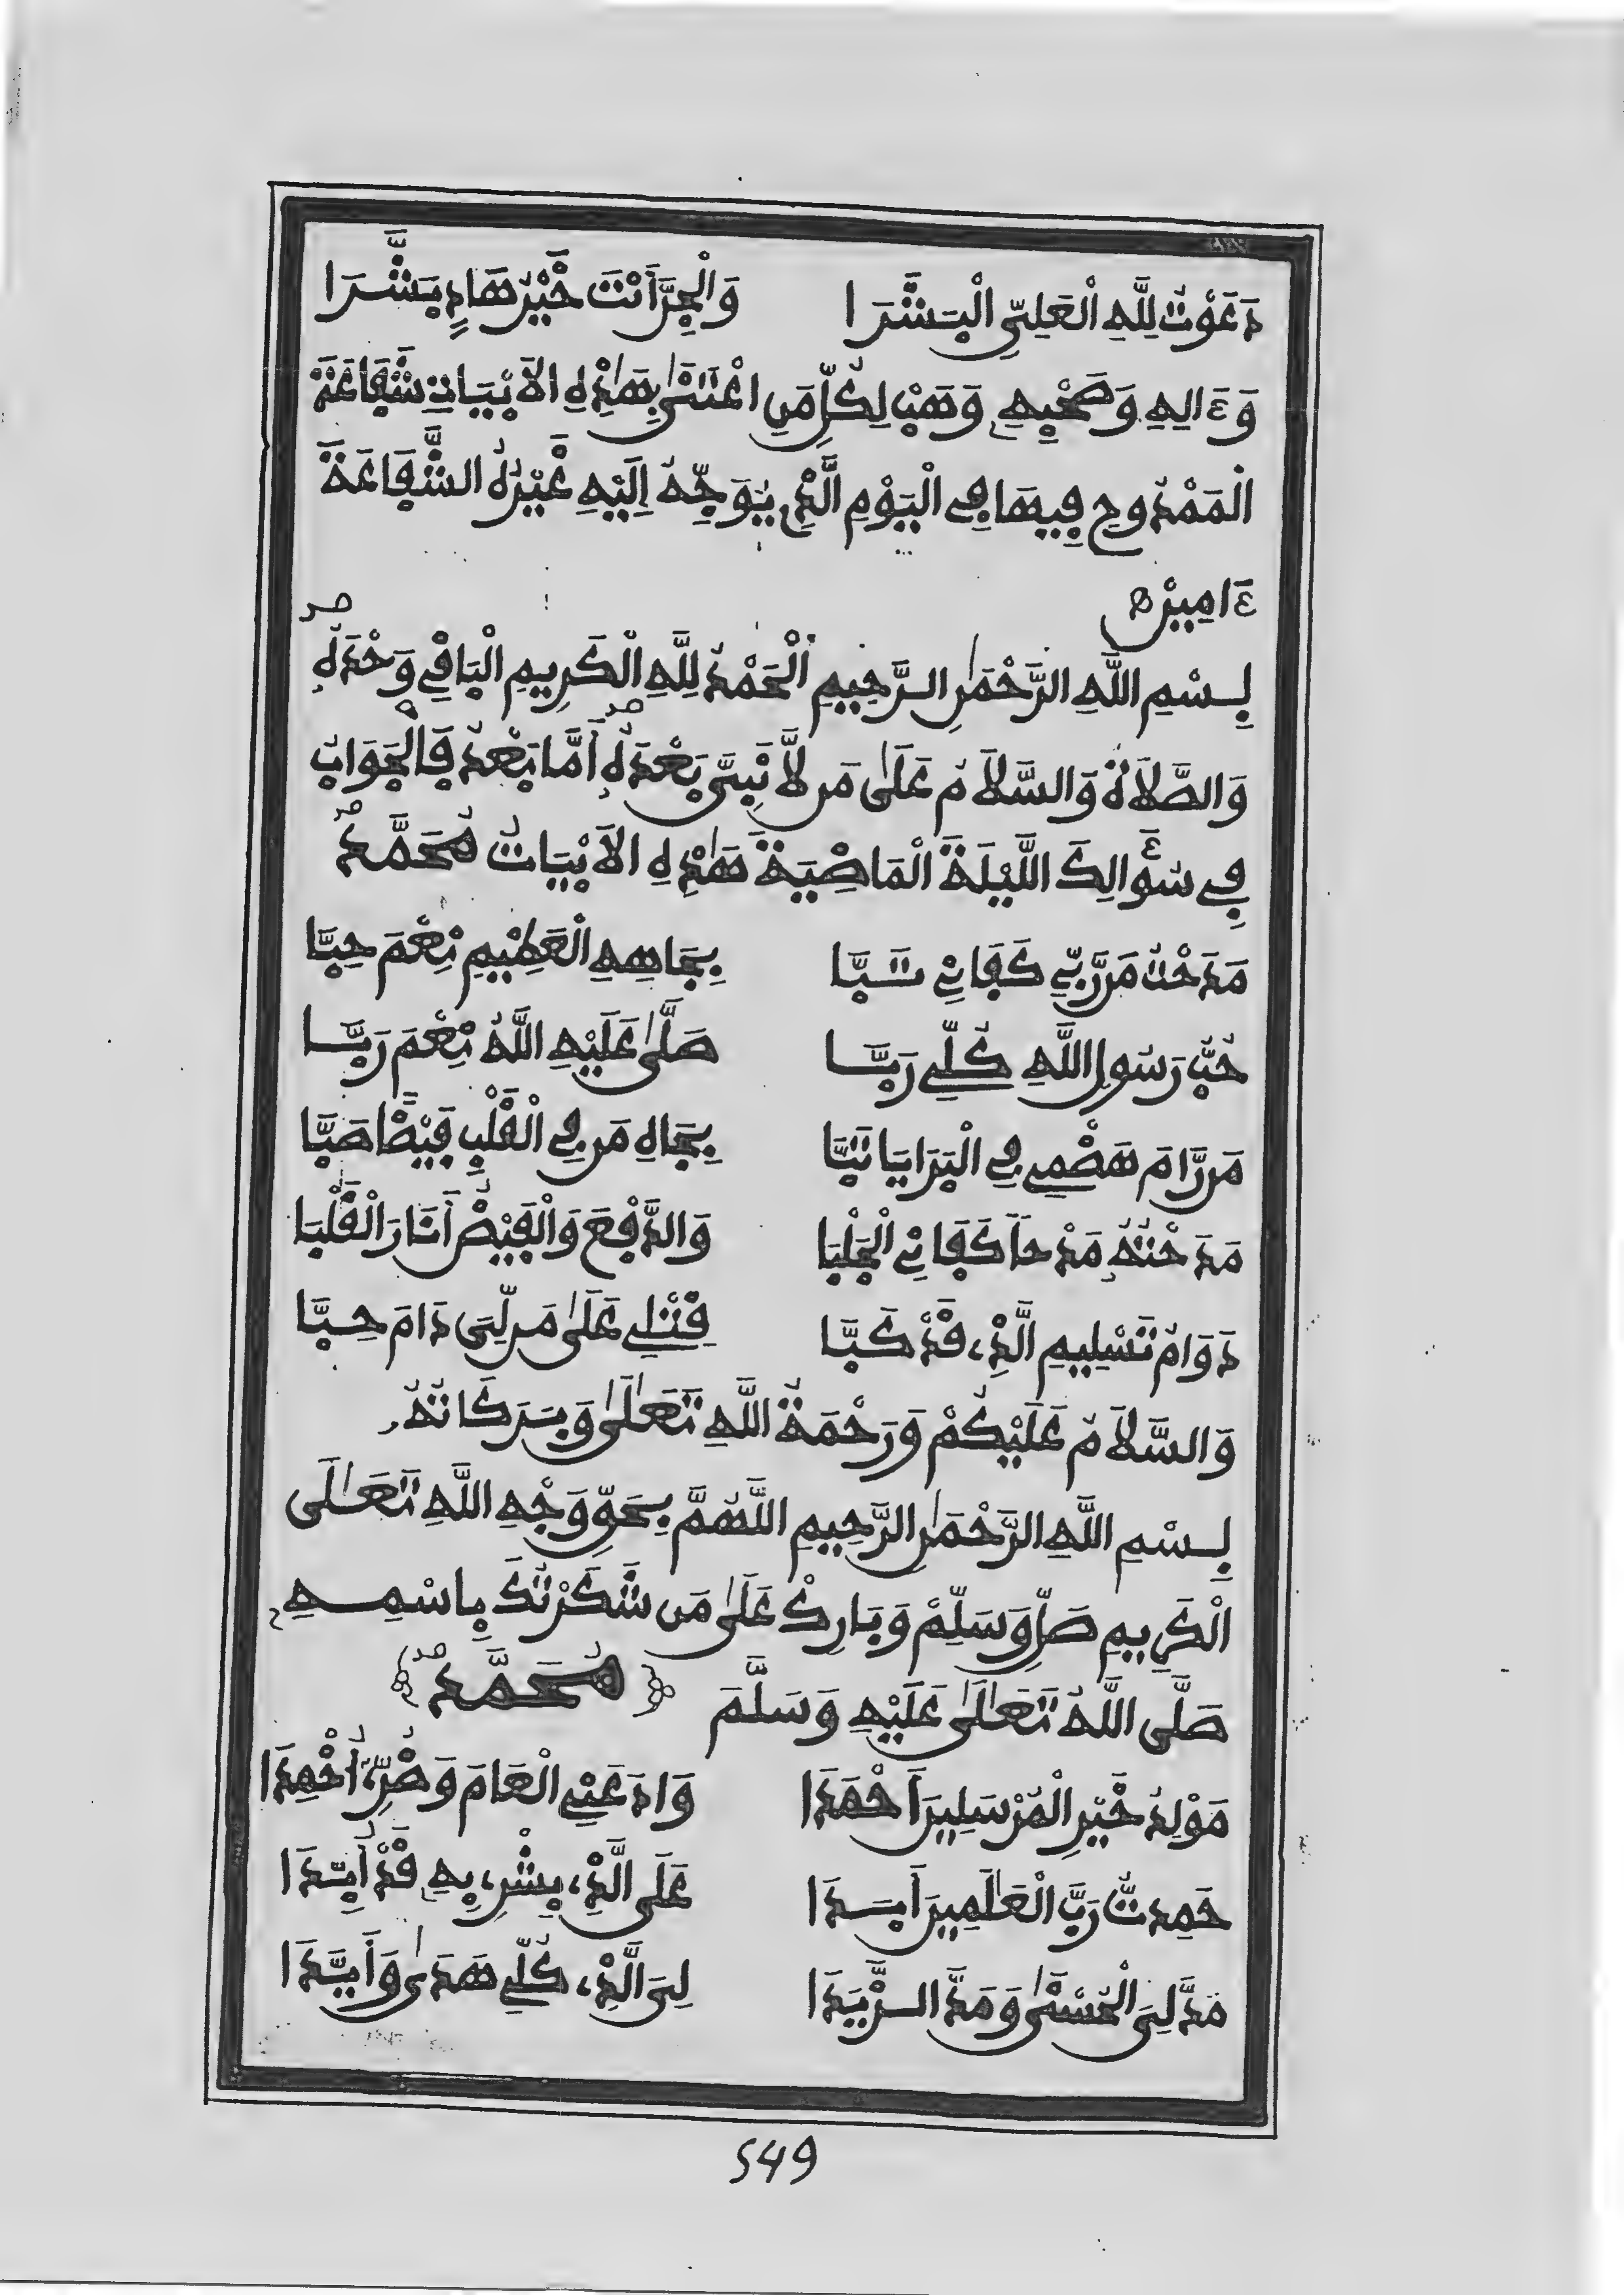 دَعَوْتُ لِلَّهِ الْعَلِيِّ الْبَشَرَا وَالْجِنَّ أَنْتَ خَيْرُ هَادٍ بَشَّرَا
وَءَالِهِ وَصَحْبِهِ وَهَبْ لِكُلِّ مَنِ اعْتَنَى بِهَذِهِ الأَبْيَاتِ شَفَاعَةَ
الْمَمْدُوحِ فِيهَا فِي الْيَوْمِ الَّذِي يُوَجِّهُ إِلَيْهِ غَيْرُهُ الشَّفَاعَةَ
ءَامِين
بِسْمِ اللَّهِ الرَّحْمَنِ الرَّحِيمِ الْحَمْدُ لِلَّهِ الْكَرِيمِ الْبَاقِي وَحْدَهُ
وَالصَّلَاةُ وَالسَّلَامُ عَلَى مَن لاَّ نَبِيَّ بَعْدَهُ أَمَّا بَعْدُ فَالْجَوَابُ
فِي سُؤَالِكَ اللَّيْلَةَ الْمَاضِيَةَ هَذِهِ الأَبْيَاتُ مُحَمَّدٌ
مَدَحْتُ مَن رَّبِّي كَفَانِي سَبَّا بِجَاهِهِ الْعَظِيمِ نِعْمَ حِبَّا
حُبُّ رَسُولِ اللَّهِ كُلِّي رَبَّا صَلَّى عَلَيْهِ اللَّهُ نِعْمَ رَبَّا
مَن رَّامَ هَضْمِي فِي الْبَرَايَا تَبَّا بِجَاهِ مَن فِي الْقَلْبِ فَيْضًا صَبَّا
مَدَحْتُهُ مَدْحًا كَفَانِي الْجَلْبَا وَالدَّفْعَ وَالْفَيْضُ أَنَارَ الْقَلْبَا
دَوَامُ تَسْلِيمِ الَّذِي قَدْ كَبَّا قِتْلِي عَلَى مَن لِّيَ دَامَ حِبَّا
وَالسَّلَامُ عَلَيْكُمْ وَرَحْمَةُ اللَّهِ تَعَالَى وَبَرَكَاتُهُ
بِسْمِ اللَّهِ الرَّحْمَنِ الرَّحِيمِ اللَّهُمَّ بِحَقِّ وَجْهِ اللَّهِ تَعَالَى
الْكَرِيمِ صَلِّ وَسَلِّمْ وَبَارِكْ عَلَى مَن شَكَرْتُكَ بِاسْمِهِ
صَلَّى اللَّهُ تَعَالَى عَلَيْهِ وَسَلَّمَ ﴿مُحَمَّد﴾
مَوْلِدُ خَيْرِ الْمُرْسَلِينَ أَحْمَدَا وَادَ عَنِّي الْعَامَ وَضُرِّي أُخْمِدَا
حَمِدتُّ رَبَّ الْعَالَمِينَ أَبَدَا عَلَى الَّذِي بِشْرِي بِهِ قَدْ أُيِّدَا
مَدَّ لِيَ الْحُسْنَى وَمَدَّ الزُّبَدَا لِيَ الَّذِي كُلِّي هَدَى وَأَيَّدَا
549